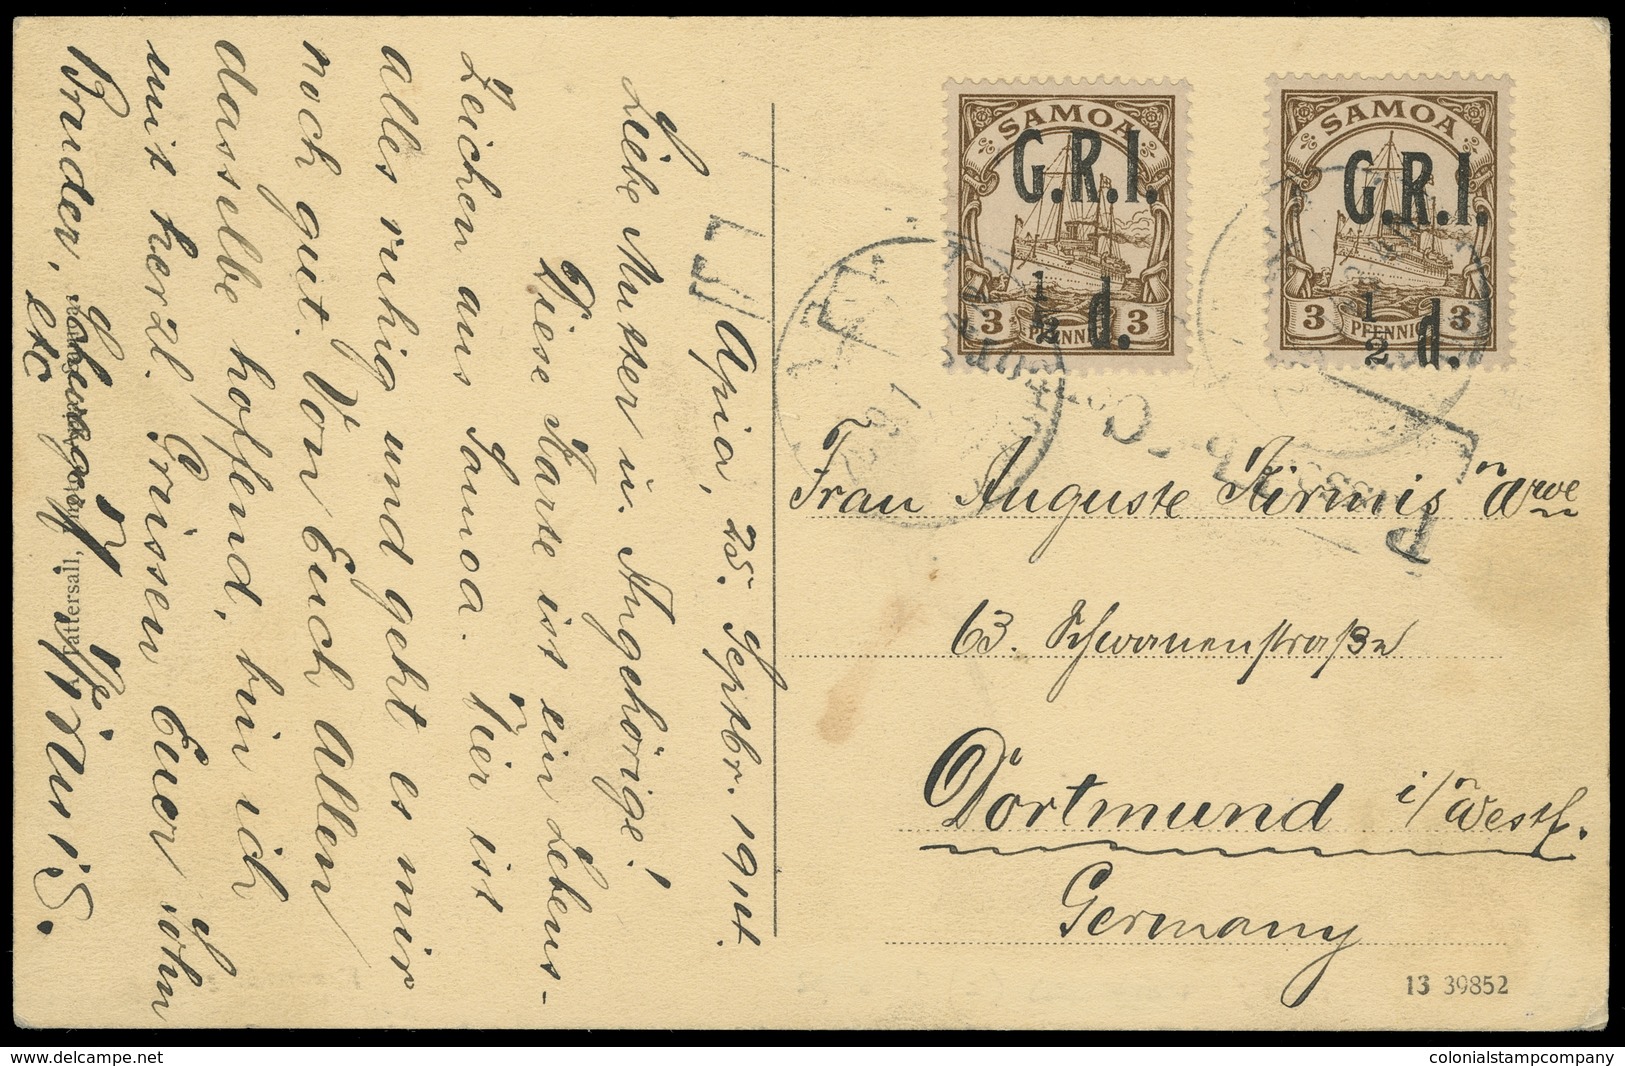 Apia, 25. Septbr. 1914.
Liebe Mutter u. Angehörige!
Diese Karte ist ein Lebens-
zeichen aus Samoa. Hier ist
alles ruhig und geht es mir
noch gut. Von Euch allen
dasselbe hoffend, bin ich
mit herzl. Grüssen Euer Sohn
Bruder, Schwager
etc Kirmis.
Tattersall,
SAMOA
G.R.I.
1/2 d.
3 PFENNIG 3
SAMOA
G.R.I.
1/2 d.
3 PFENNIG 3
Frau Auguste Kirmis Wwe
63. Schwanenstraße
Dortmund i/Westf.
Germany
13 39852
colonialstampcompany